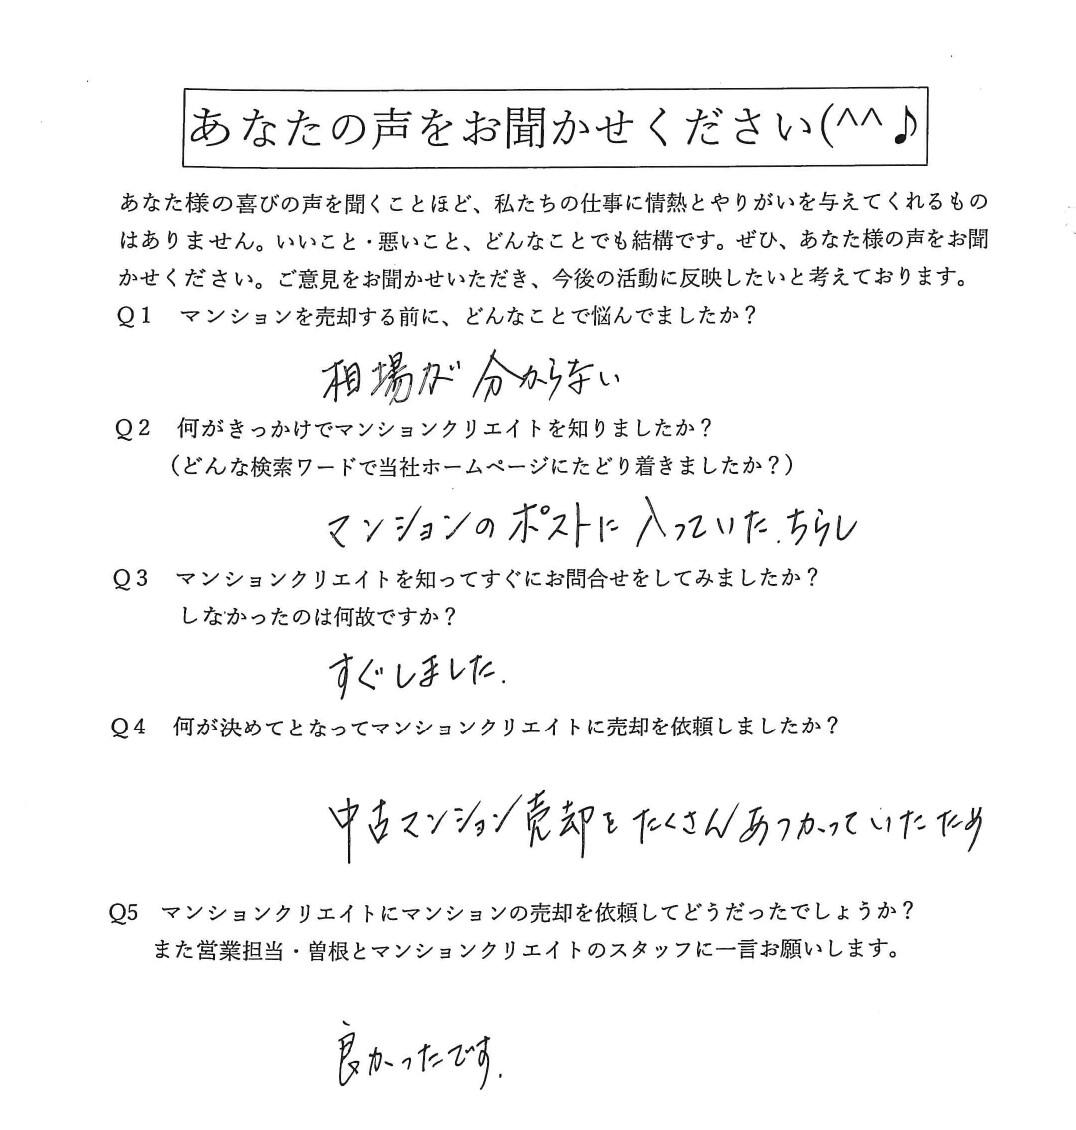 あなたの声をお聞かせください(^^♪
あなた様の喜びの声を聞くことほど、私たちの仕事に情熱とやりがいを与えてくれるもの
はありません。いいこと・悪いこと、どんなことでも結構です。ぜひ、あなた様の声をお聞
かせください。ご意見をお聞かせいただき、今後の活動に反映したいと考えております。
Q1 マンションを売却する前に、どんなことで悩んでましたか？
相場が分からない
Q2 何がきっかけでマンションクリエイトを知りましたか？
（どんな検索ワードで当社ホームページにたどり着きましたか？）
マンションのポストに入っていた.ちらし
Q3 マンションクリエイトを知ってすぐにお問合せをしてみましたか？
しなかったのは何故ですか？
すぐしました.
Q4 何が決めてとなってマンションクリエイトに売却を依頼しましたか？
中古マンション売却をたくさんあつかっていたため
Q5 マンションクリエイトにマンションの売却を依頼してどうだったでしょうか？
また営業担当・曽根とマンションクリエイトのスタッフに一言お願いします。
良かったです.